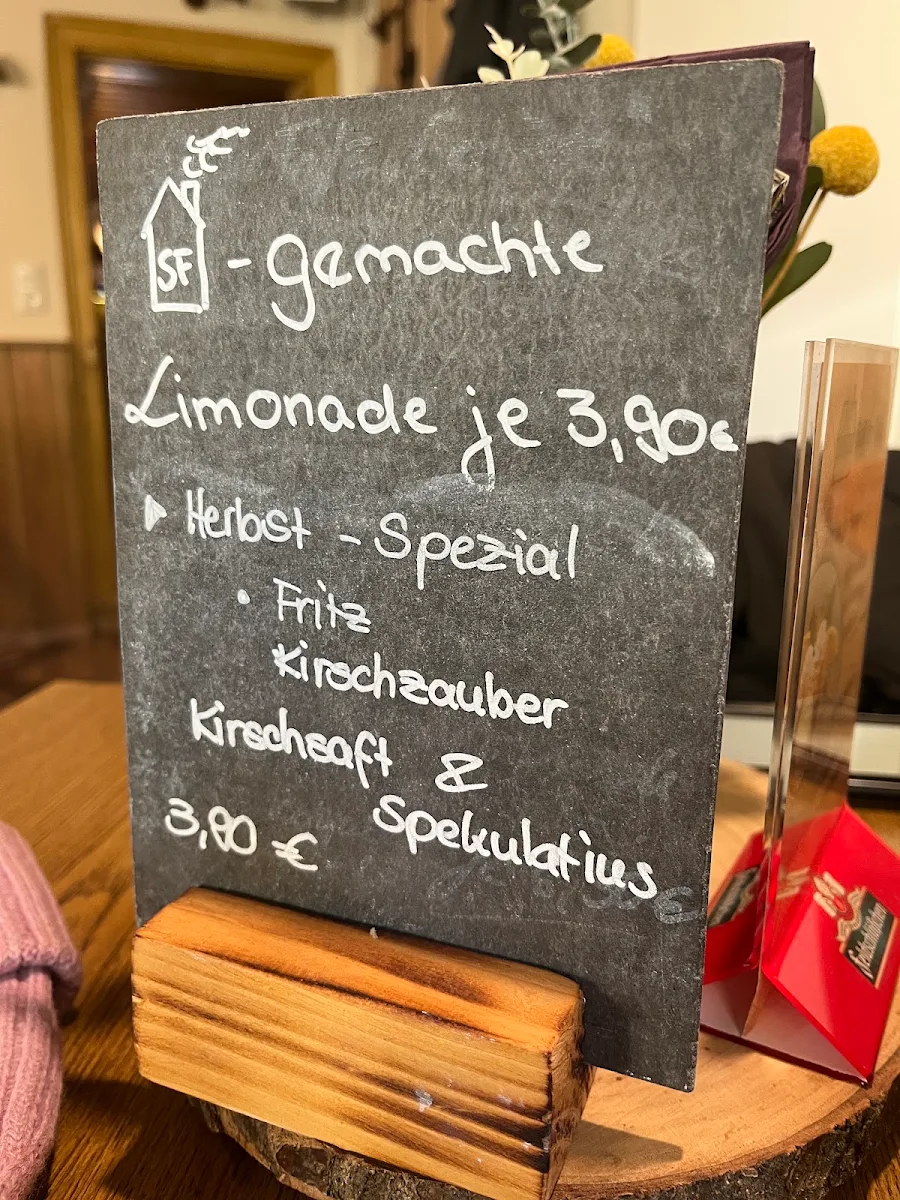 SF - gemachte
Limonade je 3,90€
Herbst - Spezial
• Fritz
Kirschzauber
Kirschsaft &
Spekulatius
3,80 €
Feldschlößchen